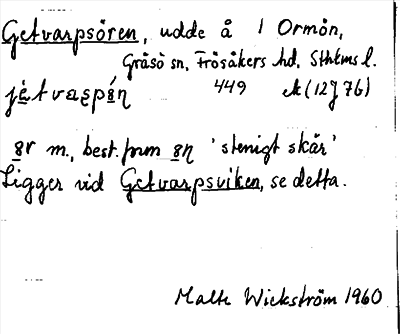 Getvarpsören, udde å 1 Ormön,
Gräsö sn, Frösåkers hd, Sthlms l.
449 ek (12J 76)
ör m., best. form ön 'stenigt skär'
Ligger vid Getvarpsviken, se detta.
Malte Wickström 1960